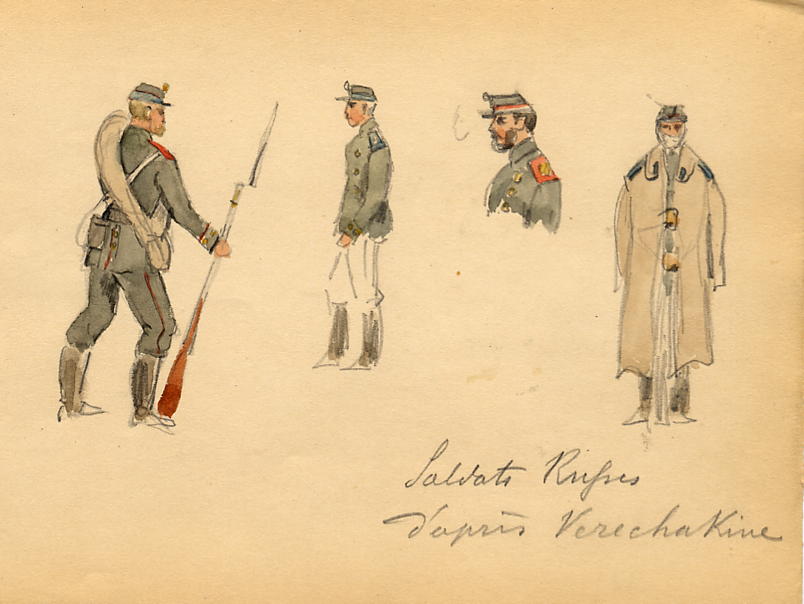 Soldats Russes
d'après Verechakine